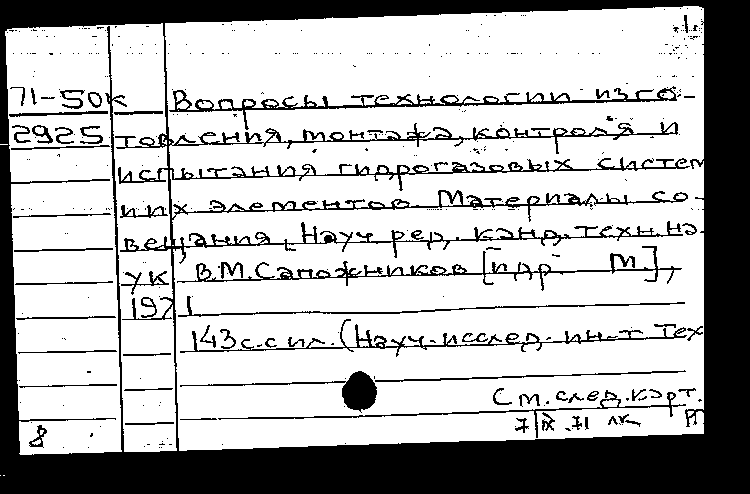 .1.
71-50к Вопросы технологии изго-
2925 товления, монтажа, контроля и
испытания гидрогазовых систем
и их элементов. Материалы со-
вещания, Науч. ред. канд. техн. на-
ук В.М. Сапожников [и др. М.],
1971
143 с. с ил. (Науч.-исслед. ин-т тех
См. след. карт.
8 7/IX.71 лк РП